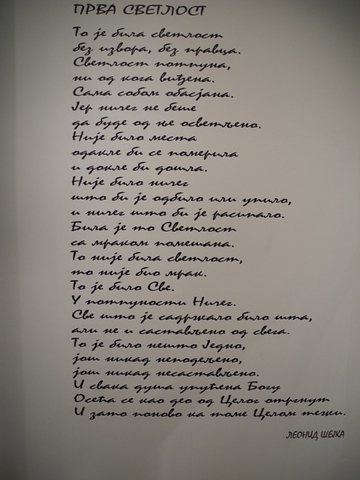 ПРВА СВЕТЛОСТ
То је била светлост
без извора, без правца.
Светлост потпуна,
ни од кога виђена.
Сама собом обасјана.
Јер ничег не беше
да буде од ње осветљено.
Није било места
одакле би се померила
и докле би дошла.
Није било ничег
што би је одбило или упило,
и ничег што би је расипало.
Била је то Светлост
са мраком помешана.
То није била светлост,
то није био мрак.
То је било Све.
У потпуности Ничег.
Све што је садржало било шта,
али не и састављено од свега.
То је било нешто Једно,
још никад неподељено,
још никад несастављено.
И свака душа упућена Богу
Осећа се као део од Целог отргнут
И зато поново ка томе Целом тежи.
ЛЕОНИД ШЕЈКА